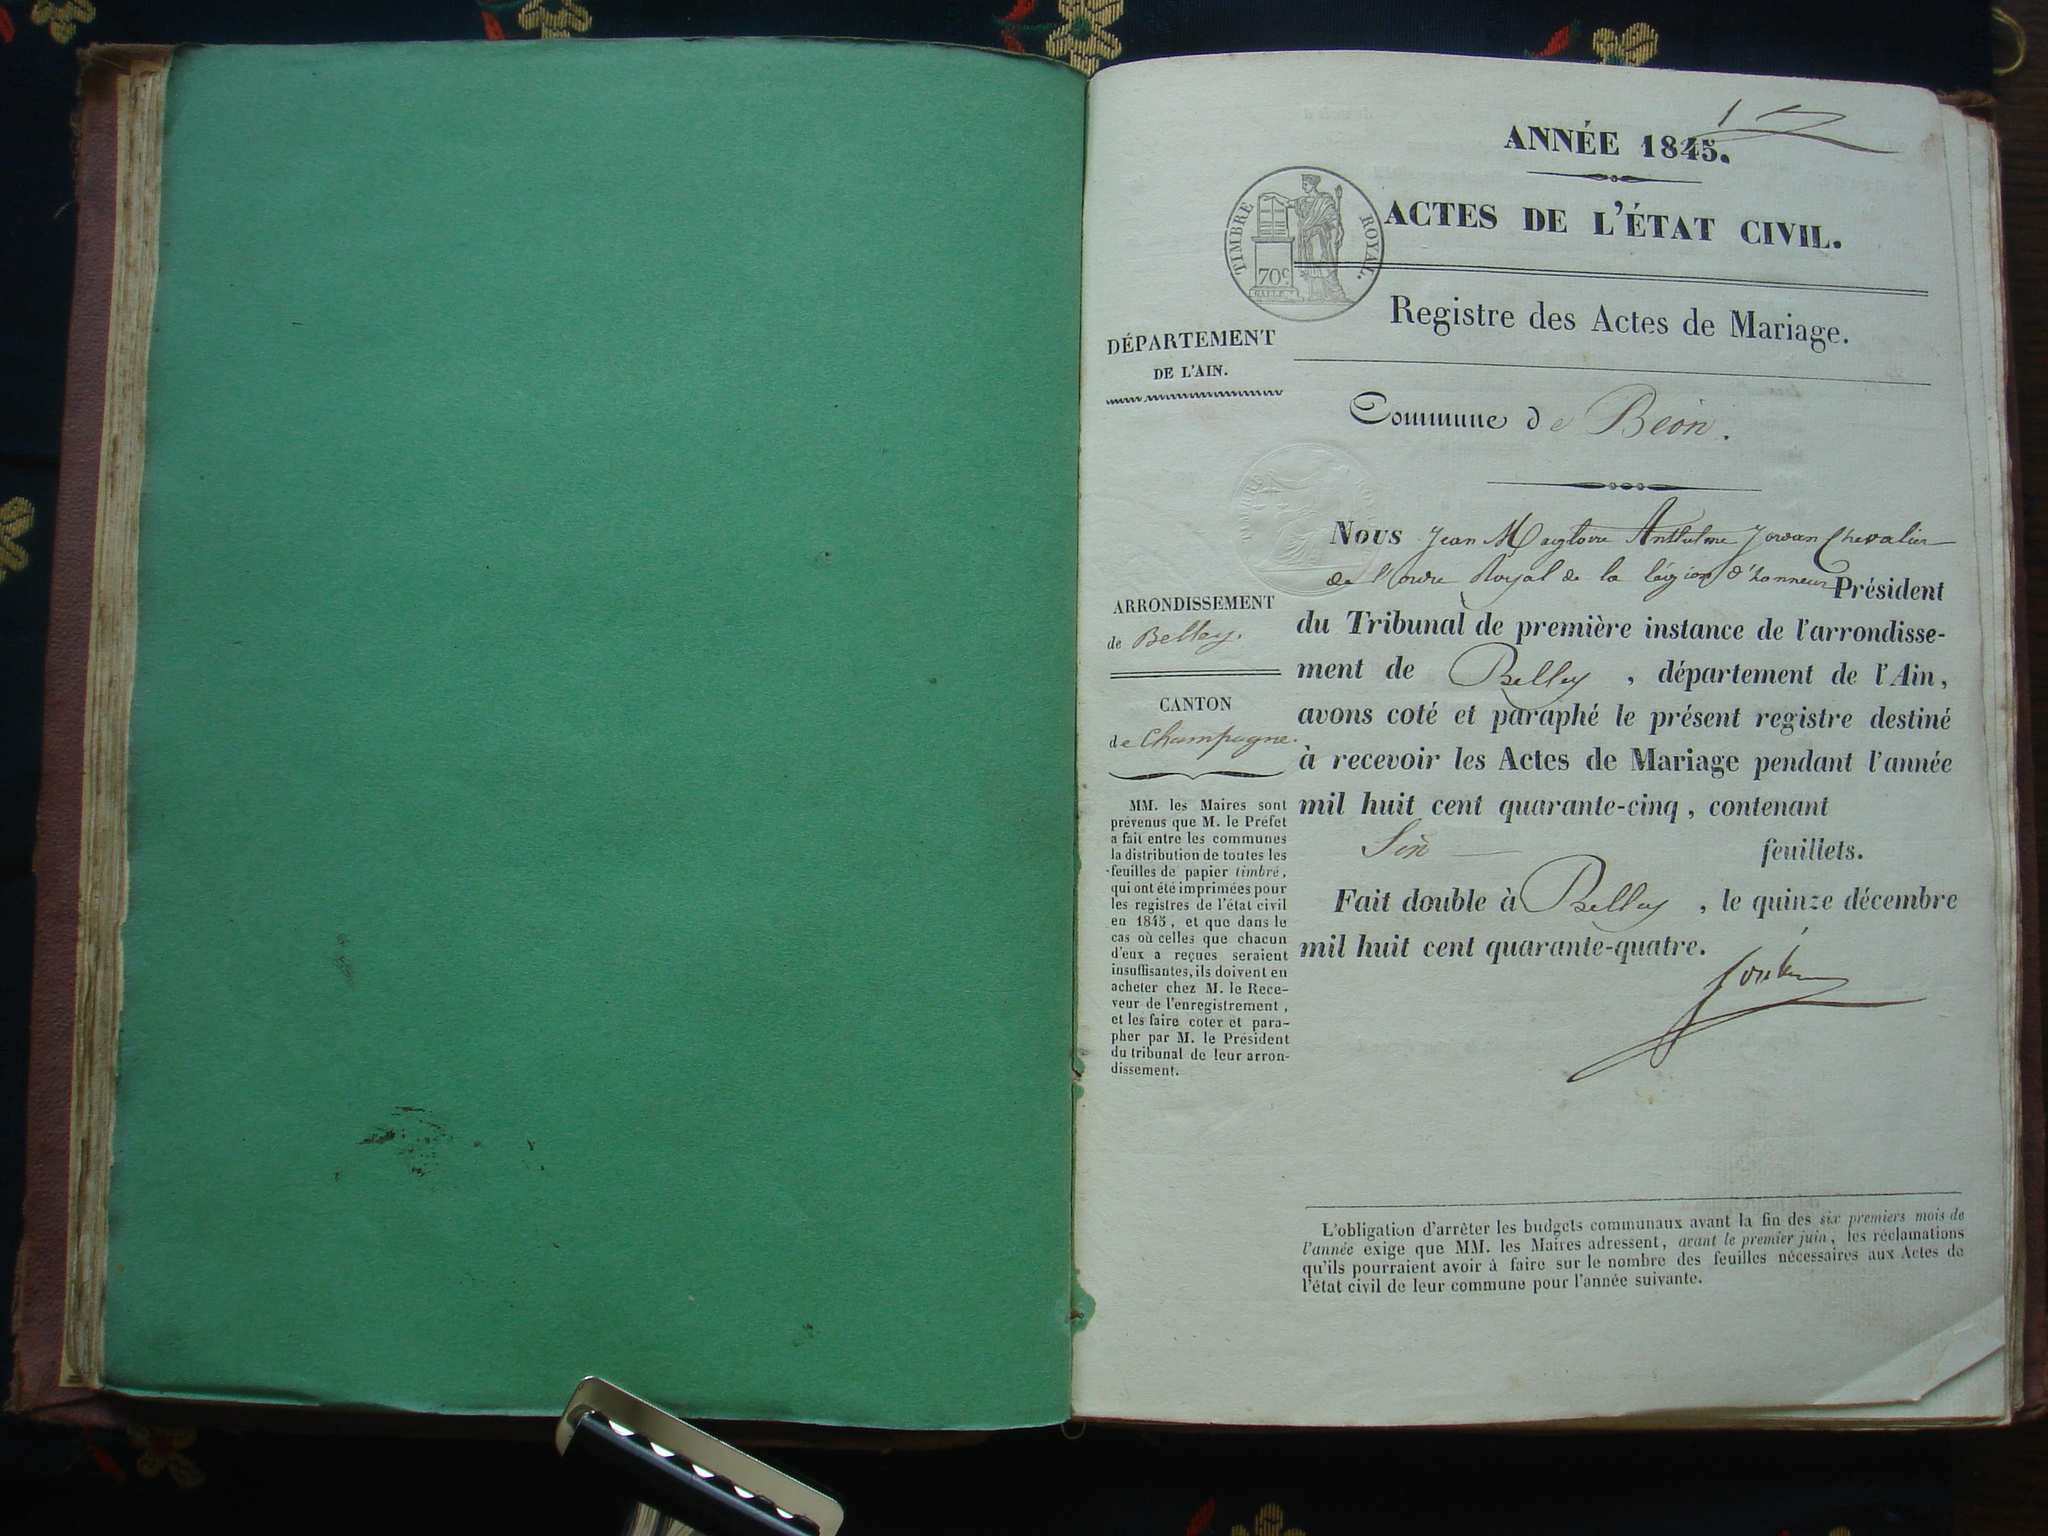 ANNÉE 1845.
1
ACTES DE L'ÉTAT CIVIL.
TIMBRE ROYAL.
70c
Registre des Actes de Mariage.
DÉPARTEMENT
DE L'AIN.
Commune de Béon.
ARRONDISSEMENT
de Belley.
CANTON
de Champagne.
MM. les Maires sont
prévenus que M. le Préfet
a fait entre les communes
la distribution de toutes les
feuilles de papier timbré,
qui ont été imprimées pour
les registres de l'état civil
en 1845, et que dans le
cas où celles que chacun
d'eux a reçues seraient
insuffisantes, ils doivent en
acheter chez M. le Rece-
veur de l'enregistrement,
et les faire coter et para-
pher par M. le Président
du tribunal de leur arron-
dissement.
Nous Jean Magloire Anthelme Chevalier
de l'ordre Royal de la légion d'honneur Président
du Tribunal de première instance de l'arrondisse-
ment de Belley, département de l'Ain,
avons coté et paraphé le présent registre destiné
à recevoir les Actes de Mariage pendant l'année
mil huit cent quarante-cinq, contenant
feuillets.
Fait double à Belley, le quinze décembre
mil huit cent quarante-quatre.
L'obligation d'arrêter les budgets communaux avant la fin des six premiers mois de
l'année exige que MM. les Maires adressent, avant le premier juin, les réclamations
qu'ils pourraient avoir à faire sur le nombre des feuilles nécessaires aux Actes de
l'état civil de leur commune pour l'année suivante.